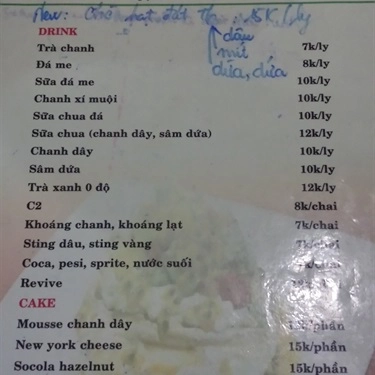 New: 15K/ly
dâu
mít
dứa, dừa
DRINK
Trà chanh 7k/ly
Đá me 8k/ly
Sữa đá me 10k/ly
Chanh xí muội 10k/ly
Sữa chua đá 10k/ly
Sữa chua (chanh dây, sâm dứa) 12k/ly
Chanh dây 10k/ly
Sâm dứa 10k/ly
Trà xanh 0 độ 12k/ly
C2 8k/chai
Khoáng chanh, khoáng lạt 7k/chai
Sting dâu, sting vàng
Coca, pesi, sprite, nước suối
Revive
CAKE
Mousse chanh dây 15k/phần
New york cheese 15k/phần
Socola hazelnut 15k/phần